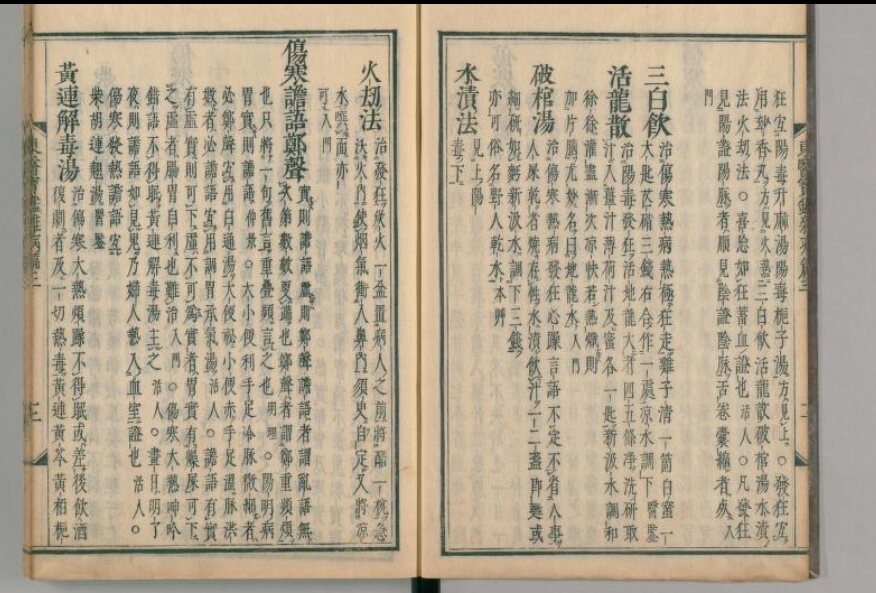 狂宜陽毒升麻湯陽毒梔子湯方見上○發狂宜
用鵲香丸方見火熱三白飮活龍散破棺湯水漬
法火刼法○喜忘如狂蓄血證也活人○凡發狂
見陽證陽脉者順見陰證陰脉舌卷囊縮者死入
門
三白飮治傷寒熱病熱極狂走雞子淸一箇白蜜一
大匙芒硝三錢右合作一處凉水調下醫鑒
活龍散治陽毒發狂活地龍大者四五條淨洗硏取
汁入薑汁薄荷汁及蜜各一匙新汲水調和
徐徐灌盡漸次凉快若熱熾則
加片腦尤妙名曰地龍水入門
破棺湯治傷寒熱病發狂心躁言語不定不省人事
人屎乾者燒存性水漬飮汁一二盞卽甦或
細硏如麪新汲水調下三錢
亦可俗名野人乾水本草
水漬法見上陽
毒下
火刼法治發狂放火一盆置病人之前將醋一椀急
沃火內使烟氣衝入鼻內須臾自定又將凉
水噀面亦
可入門
傷寒譫語鄭聲實則譫語虛則鄭聲譫語者謂亂語無
次第數數更端也鄭聲者謂鄭重頻煩
也只將一句舊言重疊頻言之也明理○陽明病
胃實則譫語仲景○大小便利手足冷脉微細者
必鄭聲宜用白通湯大便秘小便赤手足溫脉洪
數者必譫語宜用調胃承氣湯活人○譫語有實
有虛實則可下虛不可爲實者胃實有燥屎可下
之虛者腸胃自利也難治入門○傷寒大熱呻吟
錯語不得眠黃連解毒湯主之活人○晝日明了
夜則譫語如見鬼乃婦人熱入血室證也活人○
傷寒發熱譫語宜
柴胡連翹湯醫鑒
黃連解毒湯治傷寒大熱煩躁不得眠或差後飮酒
復劇者及一切熱毒黃連黃芩黃栢梔